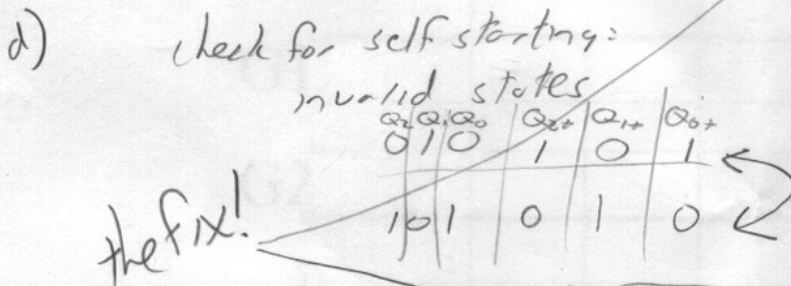 d) check for self starting:
invalid states
Q2 Q1 Q0 Q2+ Q1+ Q0+
0 1 0 1 0 1
the fix! 1 0 1 0 1 0